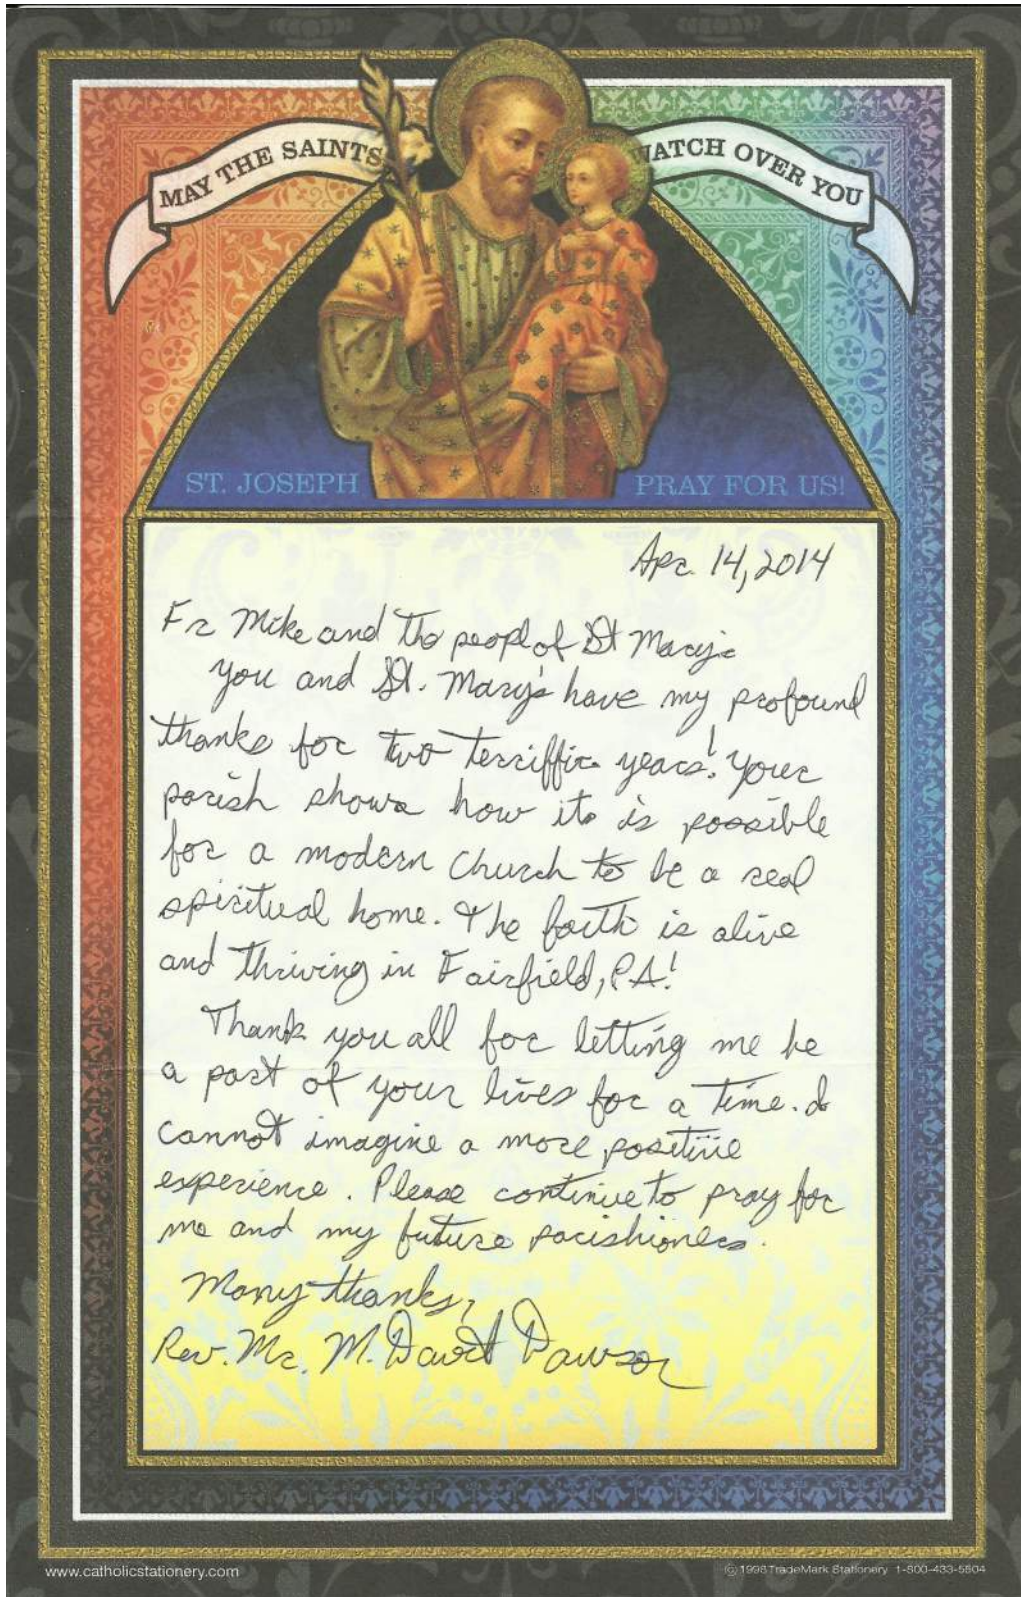 MAY THE SAINTS WATCH OVER YOU
ST. JOSEPH PRAY FOR US!
Apr. 14, 2014
Fr Mike and the peopl of St Mary's
you and St. Mary's have my profound
thanks for two terriffic years! Your
parish shows how it is possible
for a modern Church to be a real
spiritual home. The faith is alive
and thriving in Fairfield, PA!
Thank you all for letting me be
a part of your lives for a time. I
cannot imagine a more positive
experience. Please continue to pray for
me and my future parishioners.
Many thanks,
Rev. Mr. M. David Dawson
www.catholicstationery.com
© 1998 TradeMark Stationery 1-800-433-5504